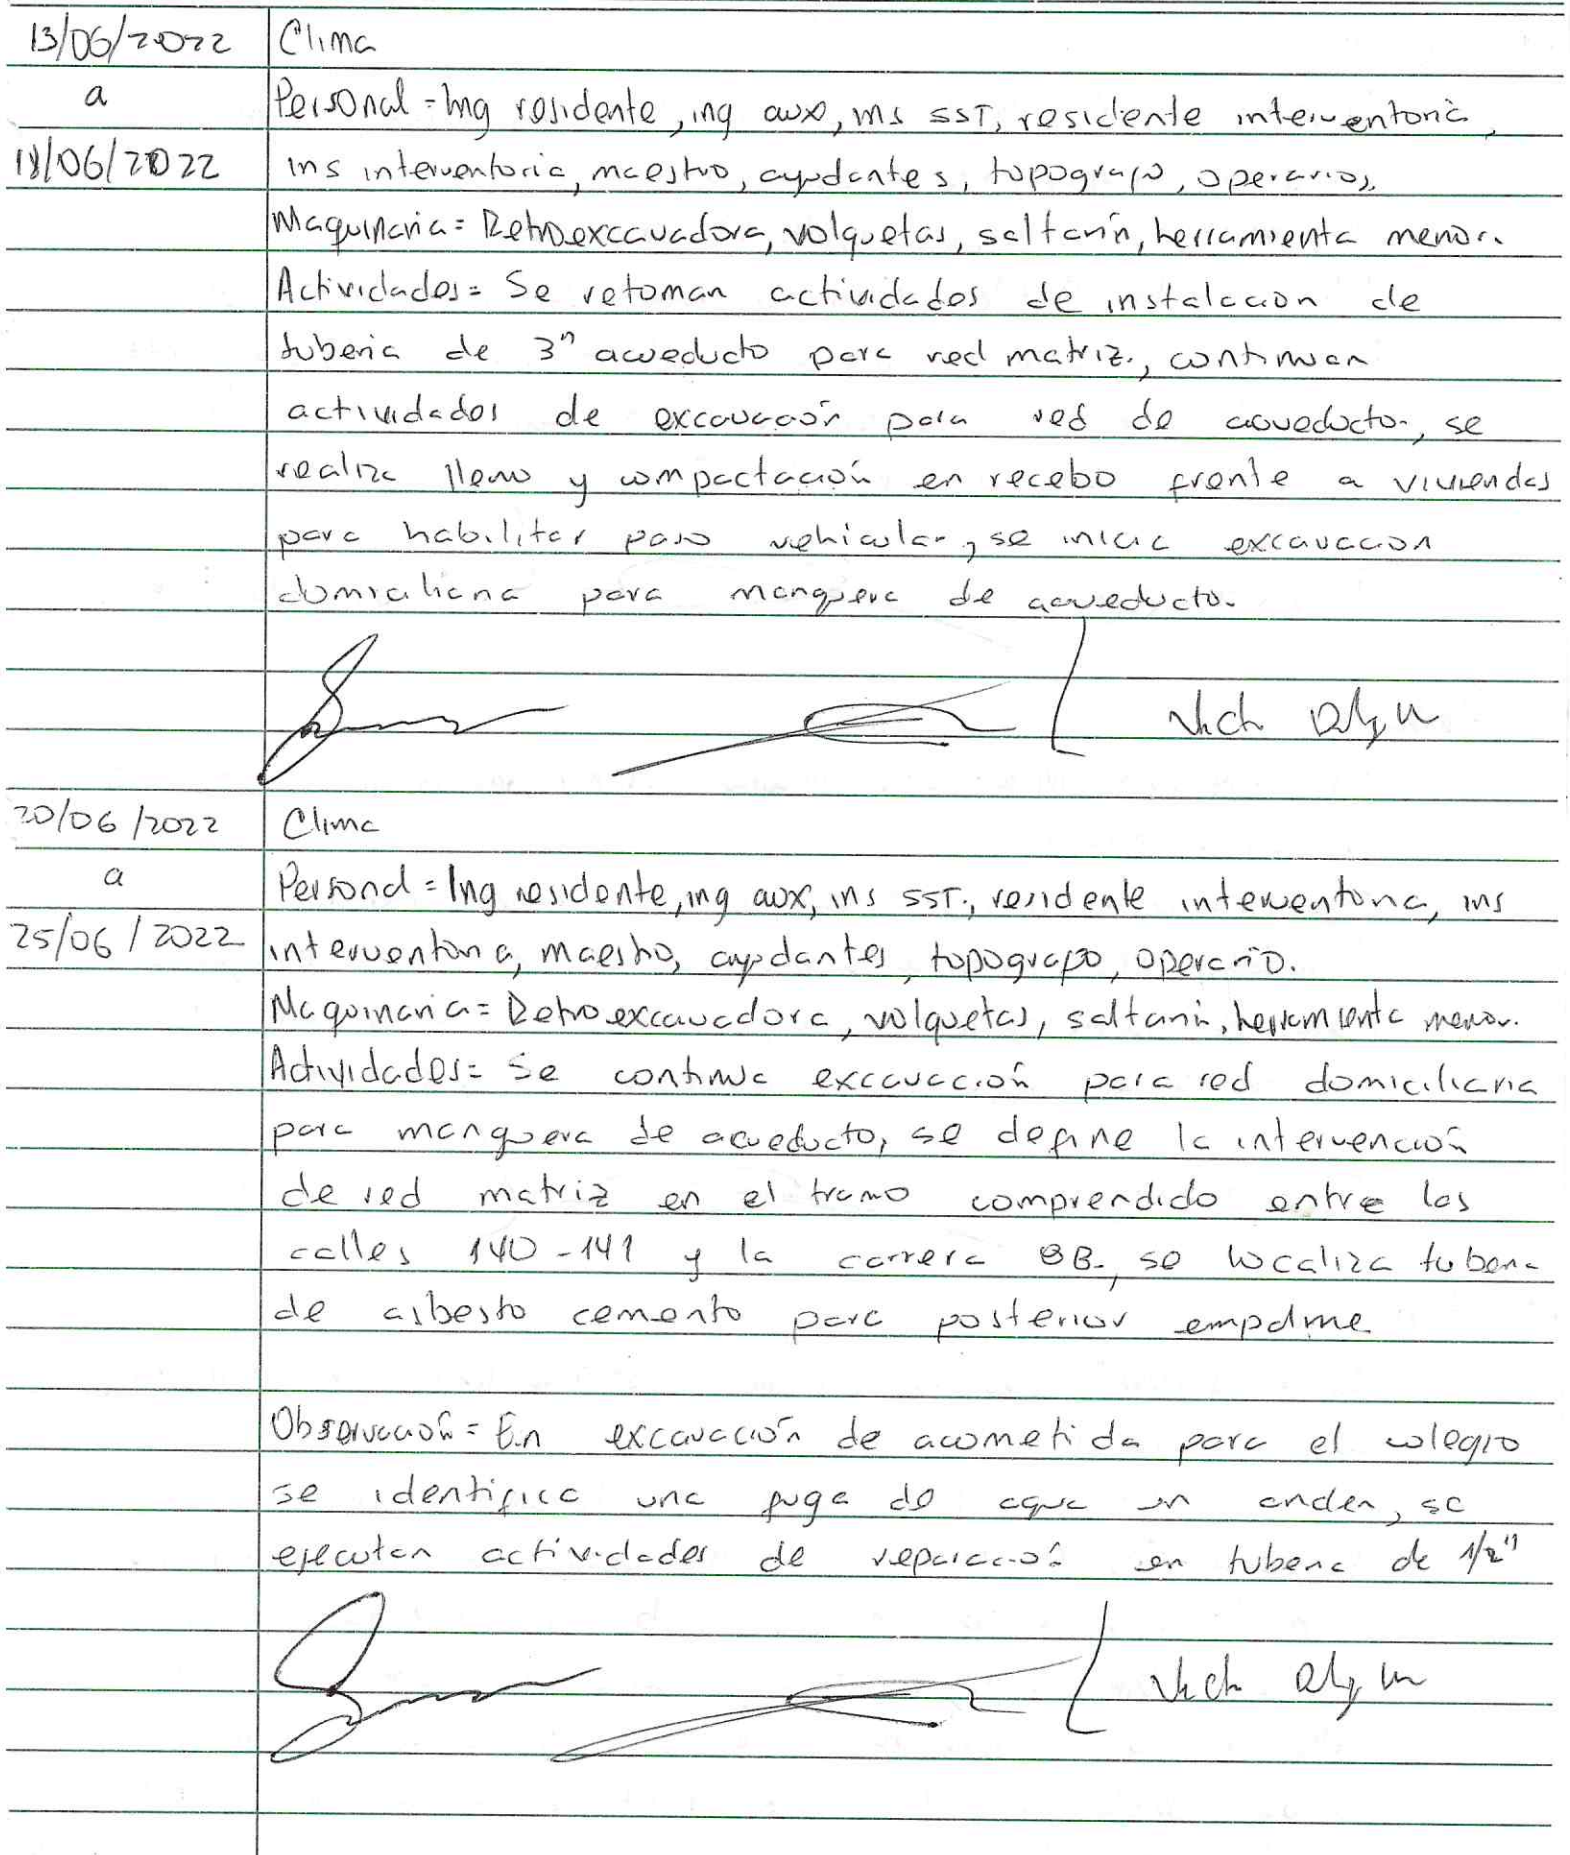 13/06/2022 Clima
a Personal = Ing residente, ing aux, ins SST, residente interventoria,
18/06/2022 ins interventoria, maestro, ayudantes, topografo, operarios.
Maquinaria = Retroexcavadora, volquetas, saltarín, herramienta menor.
Actividades = Se retoman actividades de instalacion de
tuberia de 3" acueducto para red matriz., continuan
actividades de excavación para red de acueducto., se
realiza lleno y compactación en recebo frente a viviendas
para habilitar paso vehicular, se inicia excavacion
domiciliaria para manguera de acueducto.
20/06/2022 Clima
a Personal = Ing residente, ing aux, ins SST., residente interventoria, ins
25/06/2022 interventoria, maestro, ayudantes, topografo, operario.
Maquinaria = Retroexcavadora, volquetas, saltarin, herramienta menor.
Actividades = Se continua excavación para red domiciliaria
para manguera de acueducto, se define la intervención
de red matriz en el tramo comprendido entre las
calles 140-141 y la carrera 8B., se localiza tuberia
de asbesto cemento para posterior empalme
Observación = En excavación de acometida para el colegio
se identifica una fuga de agua en anden, se
ejecutan actividades de reparación en tuberia de 1/2"